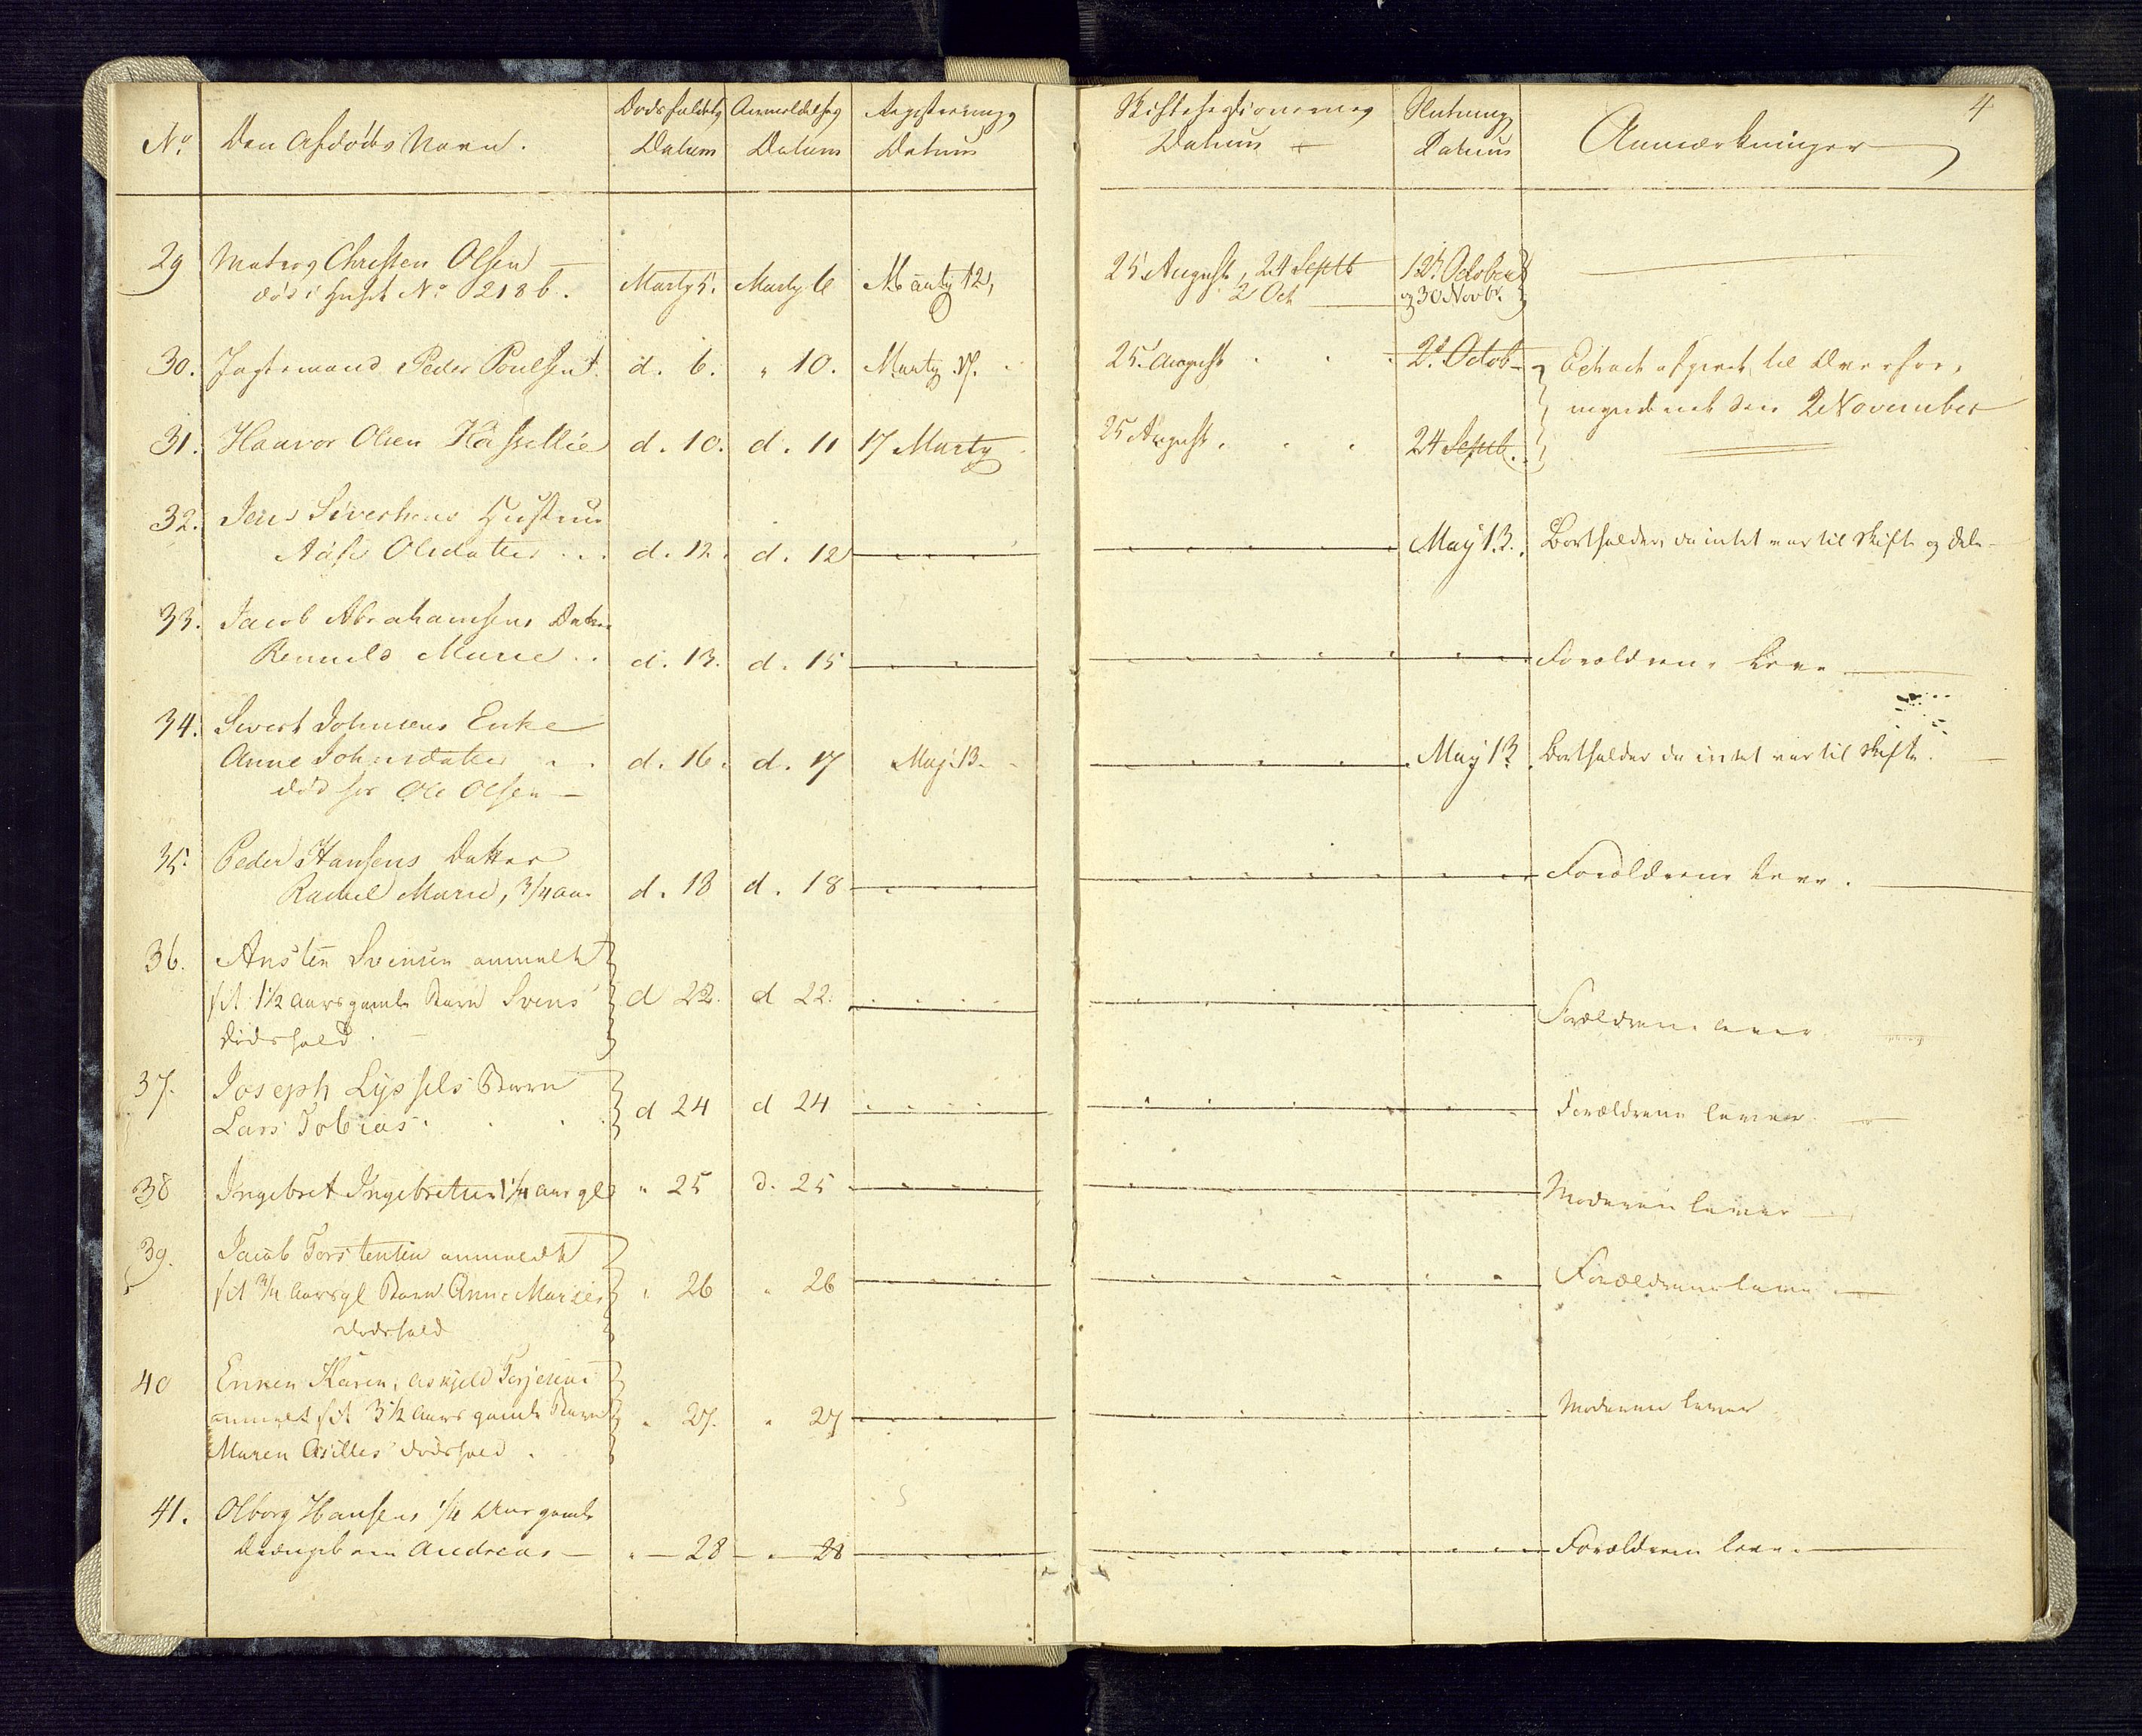 4
No. Den Afdødes Navn. Dødsfaldets Datum Anmeldelses Datum Registerings Datum Skiftesessionernes Datum Slutnings Datum Anmærkninger
29 Matros Christen Olsen
død i Huset No. 218 b. Marty 5. Marty 6 Marty 12, 25 August, 24 Septb 2 Oct 12te October og 30 Novbr.
30. Peder Poulsen d. 6. " 10. Marty 17. 25. August 2d. Octob. Extract afgivet til Overfor,
myndenet den 2 November
31. Haavor Olsen Hassellie d. 10. d. 11 17 Marty 25 August. 24 Septb.
32. Jens Siverhens Hustrue
Aase Olsdatter d. 12. d. 12 May 13. Bortfalder, da intet var til Skifte og Dele
33. Jacob Abrahamsens Datter
Marie d. 13. d. 15 Forældrene leve
34. Sivert Johnsens Enke
Anne Johnsdatter
død hos Ole Olsen d. 16. d. 17 Maj 13. May 13 Bortfalder da intet var til Skifte.
35. Peder Hansens Datter
Rachel Marie, 3/4 aar d. 18 d. 18 Forældrene leve.
36. Ansten Svensen anmeldt
sit 1 1/2 aars gamle Barn Svens
Dødsfald. d 22. d 22. Forældrene lever
37. Joseph Lyssels Barn
Lars Tobias. d 24 d 24 Forældrene lever
38 Ingebret Ingebretsen 1 1/4 aar gl " 25 d. 25 Moderen lever
39. Jacob Torstensen anmeldt
sit 3/4 Aars gl Barn Anne Maries
Dødsfald " 26 " 26 Forældrene leve
40 Enken Karen, Askjeld Terjesens
anmelt sit 3 1/2 aars gamle Barn
Maren Dødsfald. " 27. " 27 Moderen lever
41. Olborg Hansens 1/4 Aar gamle
Drengebarn Andreas " 28 " 28 Forældrene leve.